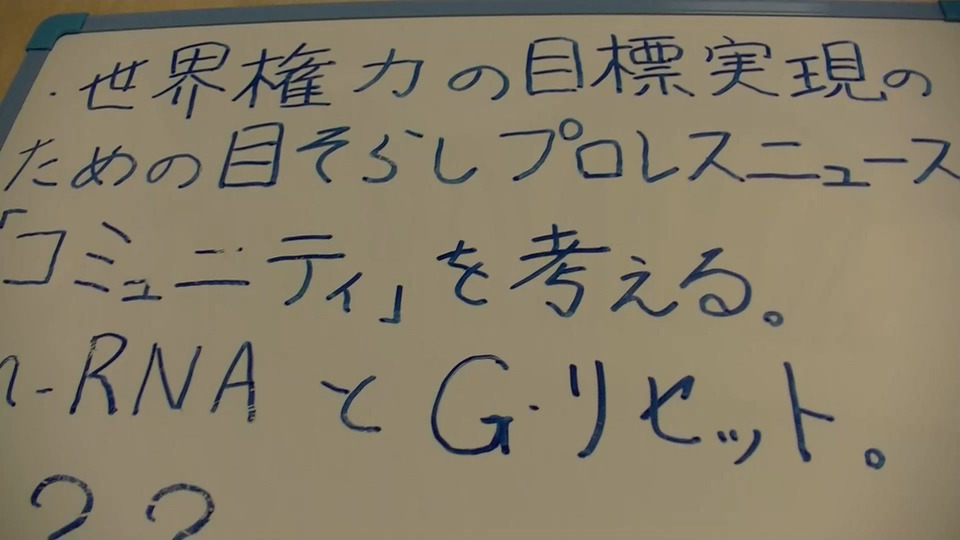 ・世界権力の目標実現の
ための目そらしプロレスニュース
「コミュニティ」を考える。
m-RNAとG・リセット。
??